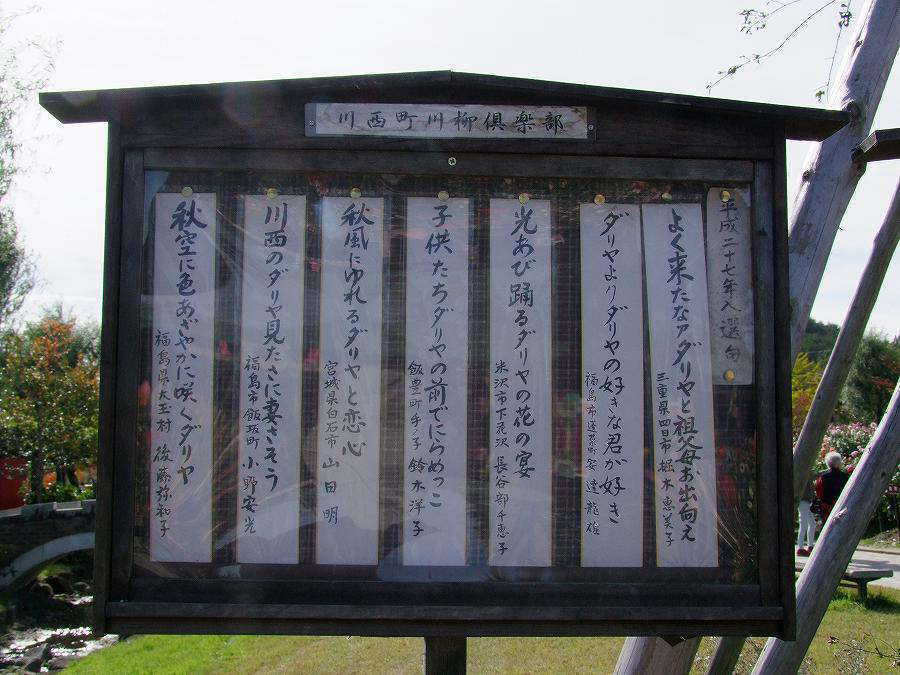 川西町川柳倶楽部
平成二十七年入選句
よく来たなアダリヤと祖父母お出向え
三重県四日市 堀木恵美子
ダリヤよりダリヤの好きな君が好き
福島市蓬莱町 安達龍雄
光あび踊るダリヤの花の宴
米沢市下花沢 長谷部千恵子
子供たちダリヤの前でにらめっこ
飯豊町手ノ子 鈴木洋子
秋風にゆれるダリヤと恋心
宮城県白石市 山田明
川西のダリヤ見たさに妻さそう
福島市飯坂町 小野安光
秋空に色あざやかに咲くダリヤ
福島県大玉村 後藤弥和子